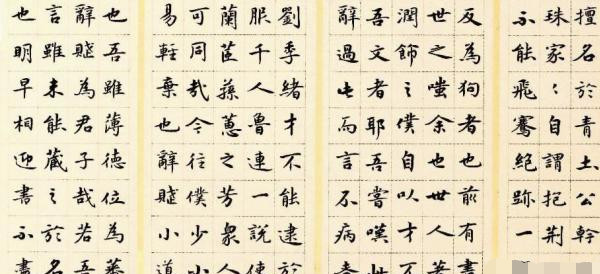 擅名於青土公幹
珠家〻自謂抱荆
不能飛騫絕跡一
反為狗者也前有書
世之嗤余也世人著
潤飾之僕自以才不
吾文者耶吾嘗嘆此
辭過此而言不病
劉季緒才不能逮於
服千人魯連一說使
蘭茝蓀蕙之芳衆人
可同哉今往僕少小
易輕棄也辭賦小道
也吾雖薄德位為蕃
辭賦為君子哉若吾
言雖未能藏之於名
也明早相迎書不